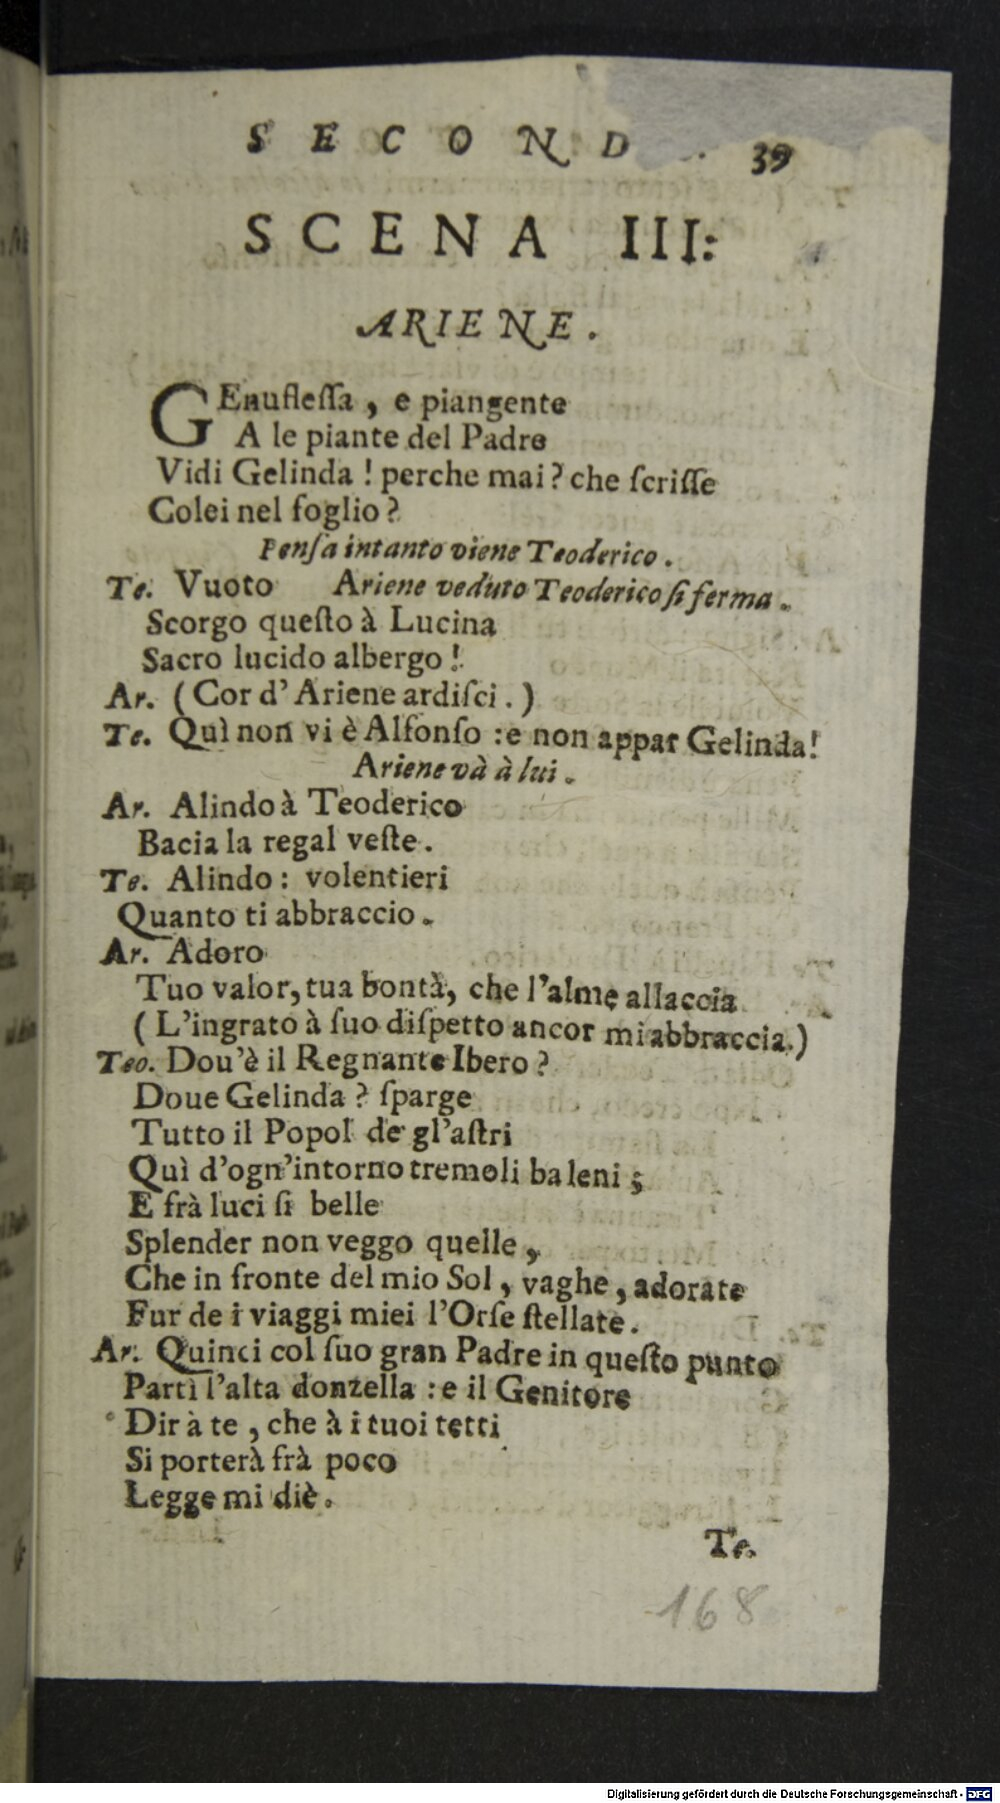 SECOND . 39
SCENA III:
ARIENE.
GEnufleſſa, e piangente
A le piante del Padre
Vidi Gelinda! perche mai? che ſcriſſe
Colei nel foglio?
Penſa intanto viene Teoderico.
Te. Vuoto Ariene veduto Teoderico ſi ferma.
Scorgo queſto à Lucina
Sacro lucido albergo!
Ar. (Cor d'Ariene ardiſci.)
Te. Quì non vi è Alfonſo: e non appar Gelinda!
Ariene và à lui.
Ar. Alindo à Teoderico
Bacia la regal veſte.
Te. Alindo: volentieri
Quanto ti abbraccio.
Ar. Adoro
Tuo valor, tua bontà, che l'alme allaccia
(L'ingrato à ſuo diſpetto ancor mi abbraccia.)
Teo. Dou'è il Regnante Ibero?
Doue Gelinda? ſparge
Tutto il Popol de gl'aſtri
Quì d'ogn'intorno tremoli baleni;
E frà luci ſi belle
Splender non veggo quelle,
Che in fronte del mio Sol, vaghe, adorate
Fur de i viaggi miei l'Orſe ſtellate.
Ar. Quinci col ſuo gran Padre in queſto punto
Partì l'alta donzella: e il Genitore
Dir à te, che à i tuoi tetti
Si porterà frà poco
Legge mi diè.
Te.
168
Digitalisierung gefördert durch die Deutsche Forschungsgemeinschaft - DFG